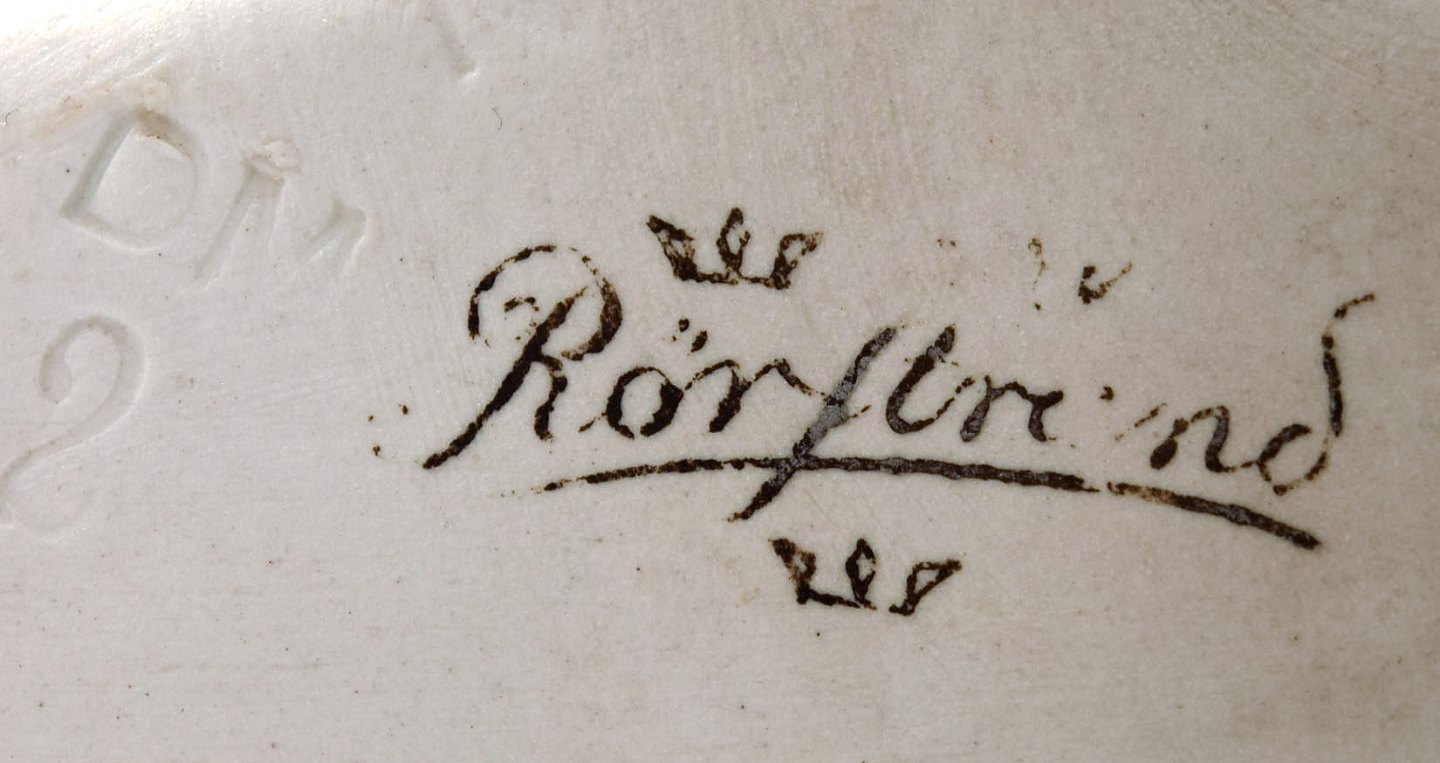 DM
2
Rörstrand